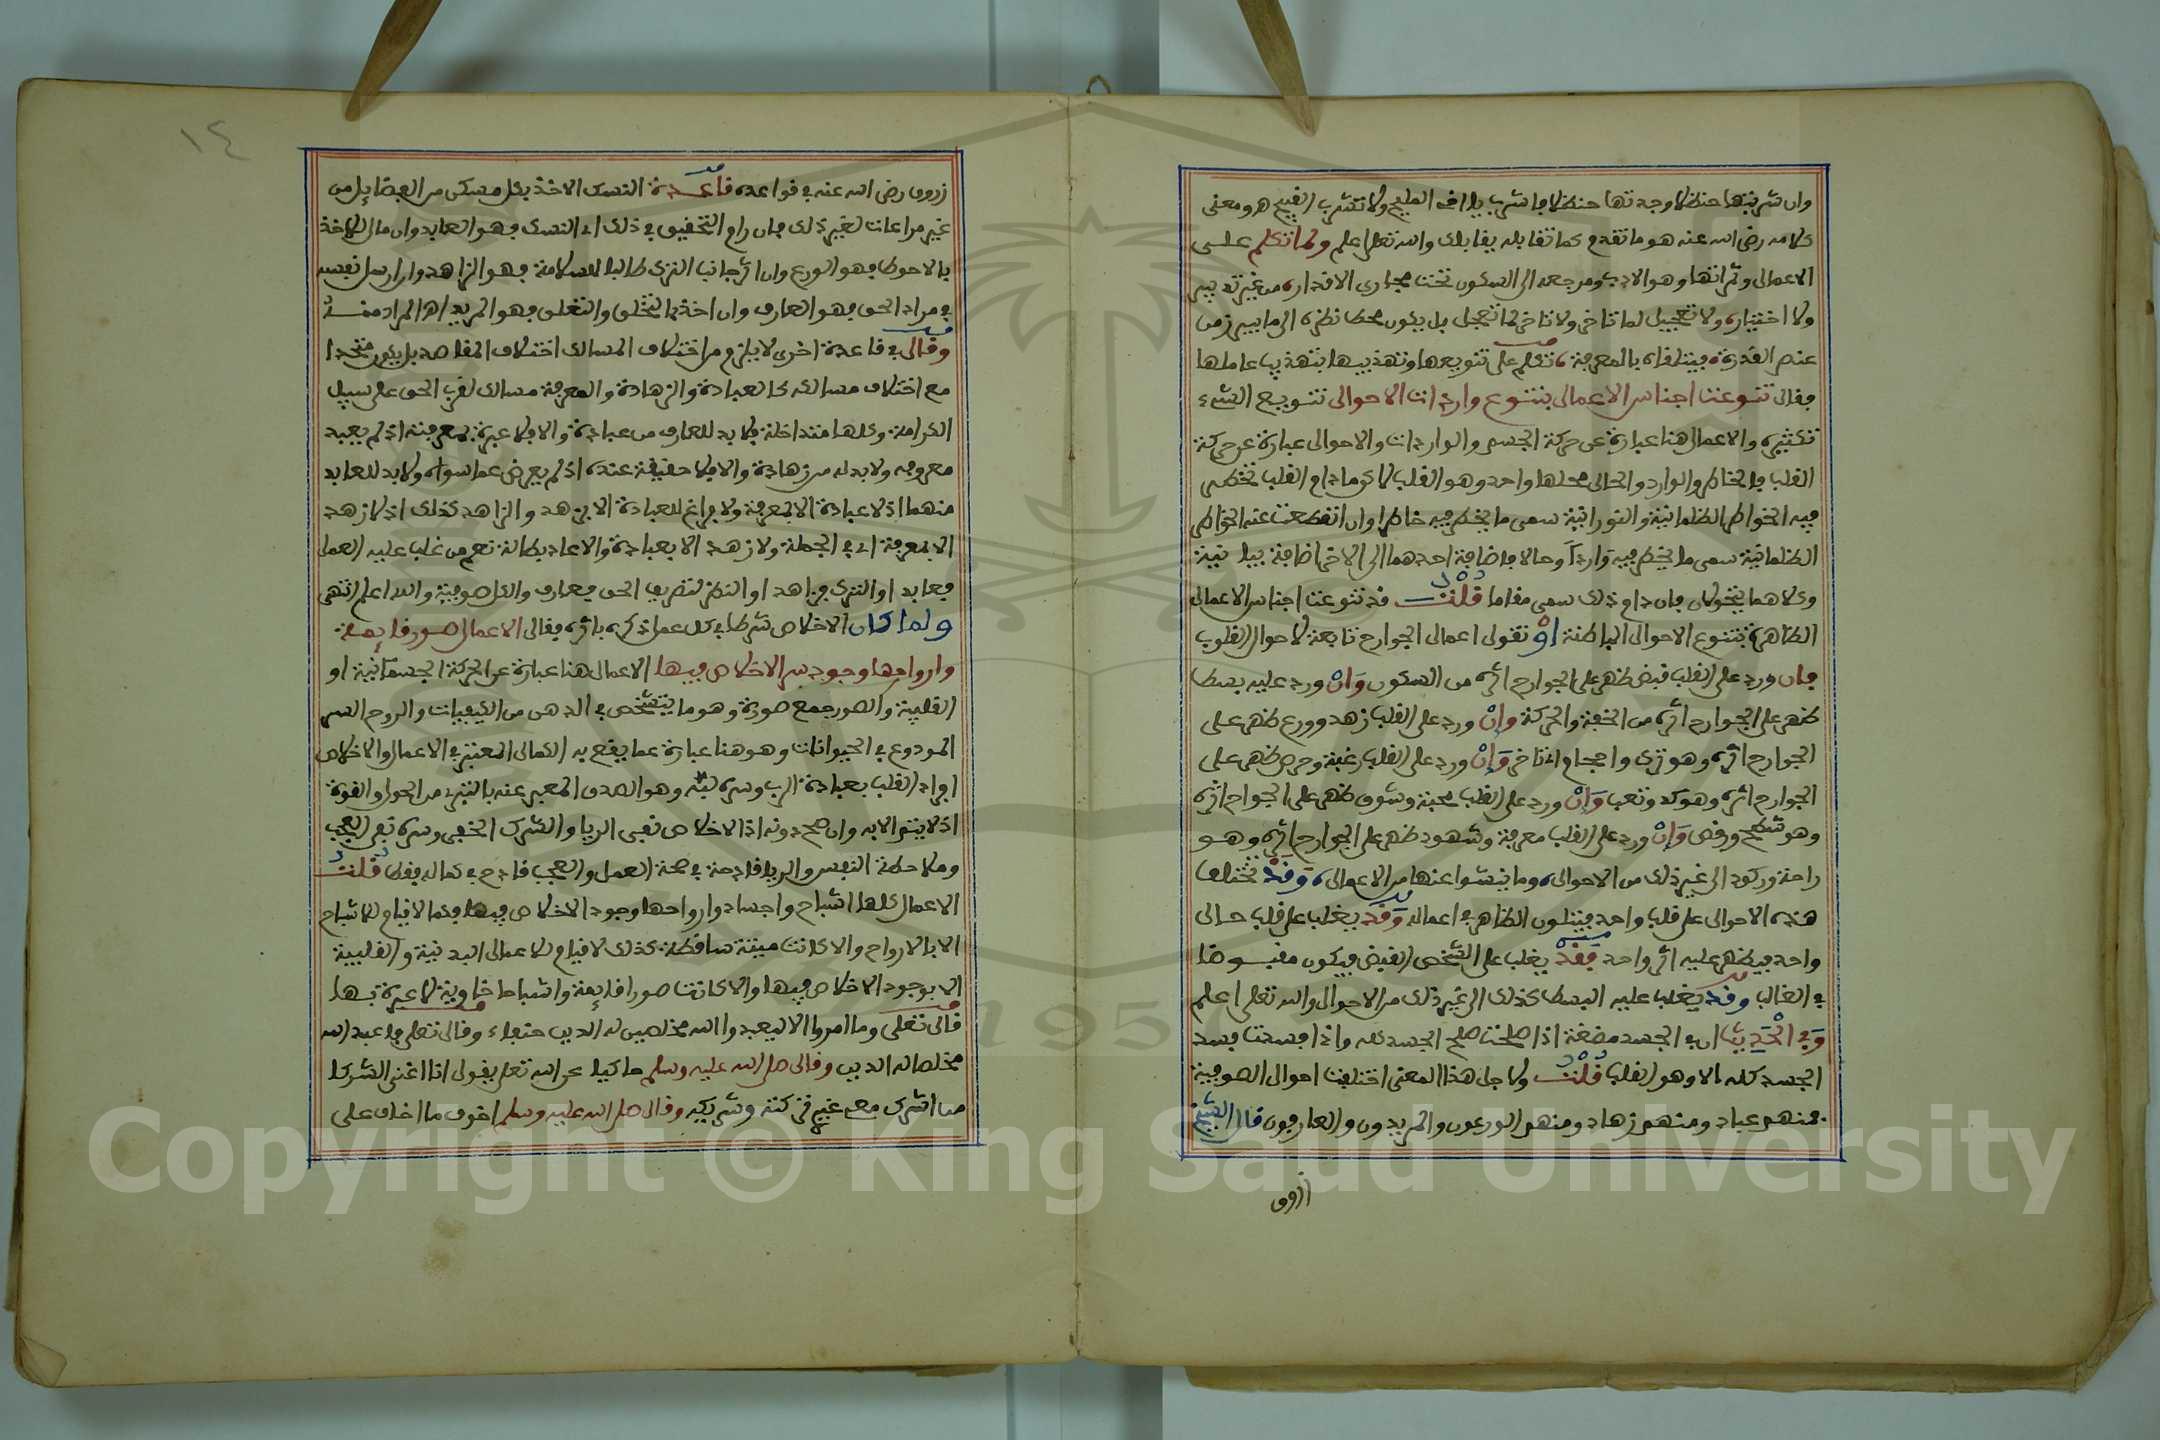 وان شربتها حنظلا وجدتها حنظلا فاشرب يا اخي المليح ولا تشرب القبيح هو ومعنى
كلامه رضي الله عنه هو ما تقدم كما تقابله يقابلك والله تعلى اعلم ولما تكلم على
الاعمال وثمراتها وهو الادب ومرجعه الى السكون تحت مجاري الاقدار من غير تدبير
ولا اختيار ولا تعجيل لما تاخر ولا تاخر لما تعجل بل يكون محط نظره الى ما يبرز من
عنصر القدرة فيتلقاه بالمعرفة تكلم على تنويعها وتهذيبها بتهذيب عاملها
فقال تنوعت اجناس الاعمال بتنوع واردات الاحوال تنويع الشيء
تكثيره والاعمال هنا عبارة عن حركة الجسم والواردات والاحوال عبارة عن حركة
القلب فالخاطر والوارد والحال محلها واحد وهو القلب لاكن ما دام القلب تخطر
فيه الخواطر الظلمانية والنورانية سمى ما يخطر فيه خاطرا وان انقطعت عنه الخواطر
الظلمانية سمى ما يخطر فيه واردا وحالا فاضافة احدهما الى الاخر اضافة بيانية
وكلاهما يتحولان فان دام ذلك سمى مقاما قلت قد تنوعت اجناس الاعمال
الظاهرة بتنوع الاحوال الباطنة او تقول اعمال الجوارح تابعة لاحوال القلوب
فان ورد على القلب قبض ظهر على الجوارح اثره من السكون وان ورد عليه بسط
ظهر على الجوارح اثره من الخفة والحركة وان ورد على القلب زهد وورع ظهر على
الجوارح اثره وهو ترك واحجام اي تاخر وان ورد على القلب رغبة وحرص ظهر على
الجوارح اثره وهو كد وتعب وان ورد على القلب محبة وشوق ظهر على الجوارح اثره
وهو شطح ورقص وان ورد على القلب معرفة وشهود ظهر على الجوارح اثره وهو
راحة وركود الى غير ذلك من الاحوال وما ينشوا عنها من الاعمال وقد تختلف
هذه الاحوال على قلب واحد فيتلون الظاهر في اعماله وقد يغلب على قلب حال
واحد فيظهر عليه اثر واحد فقد يغلب على الشخص القبض فيكون مقبوضا
في الغالب وقد يغلب عليه البسط كذلك الى غير ذلك من الاحوال والله تعلى اعلم
وفي الحديث ان في الجسد مضغة اذا صلحت صلح الجسد كله واذا فسدت فسد
الجسد كله الا وهو القلب قلت ولاجل هذا المعنى اختلفت احوال الصوفية
فمنهم عباد ومنهم زهاد ومنهم الورعون والمريدون والعارفون قال الشيخ
زروق
١٤
زروق رضي الله عنه في قواعده قاعدة النسك الاخذ بكل مسكن من الفضايل من
غير مراعات لغير ذلك فان رام التحقيق في ذلك اي النسك فهو العابد وان مال للاخذ
بالاحوط فهو الورع وان اثر جانب الترك طالبا للسلامة فهو الزاهد وان ارسل نفسه
في مراد الحق فهو العارف وان اخذ بالتخلق والتعلق فهو المريد اه المراد منه
وقال في قاعدة اخرى لا يلزم من اختلاف المسالك اختلاف المقاصد بل يكون متحدا
مع اختلاف مسالكه كالعبادة والزهادة والمعرفة مسالك لقرب الحق على سبيل
الكرامة وكلها متداخلة فلا بد للعارف من عبادة والا فلا عبرة بمعرفته اذ لم يعبد
معروفه ولا بد له من زهادة والا فلا حقيقة عنده اذ لم يعرض عما سواه ولا بد للعابد
منهما اذ لا عبادة الا بمعرفة ولا فراغ للعبادة الا بزهد والزاهد كذلك اذ لا زهد
الا بمعرفة اي في الجملة ولا زهد الا بعبادة والا عاد بطالة نعم من غلب عليه العمل
فعابد او الترك فزاهد او النظر لتصريف الحق فعارف والكل صوفية والله اعلم انتهى
ولما كان الاخلاص شرطا في كل عمل ذكره باثره فقال الاعمال صور قايمة
وارواحها وجود سر الاخلاص فيها الاعمال هنا عبارة عن الحركة الجسمانية او
القلبية والصور جمع صورة وهو ما يتشخص في الذهن من الكيفيات والروح السر
المودوع في الحيوانات وهو هنا عبارة عما يقع به الكمال المعتبر في الاعمال والاخلاص
افراد القلب بعبادة الرب وسره لبه وهو الصدق المعبر عنه بالتبري من الحول والقوة
اذ لا يتم الا به وان صح دونه اذ الاخلاص نفي الريا والشرك الخفي وسره نفي العجب
وملاحظة النفس والريا قادحة في صحة العمل والعجب قادح في كماله فقط قلت
الاعمال كلها اشباح واجساد وارواحها وجود الاخلاص فيها فكما لا قيام للاشباح
الا بالارواح والا كانت ميتة ساقطة كذلك لا قيام للاعمال البدنية والقلبية
الا بوجود الاخلاص فيها والا كانت صورا قايمة واشباحا خاوية لا عبرة بها
قال تعلى وما امروا الا ليعبدوا الله مخلصين له الدين حنفاء وقال تعلى فاعبد الله
مخلصا له الدين وقال صلى الله عليه وسلم حاكيا عن الله تعلى يقول انا اغنى الشركا
من اشرك معي غيري تركته وشريكه وقال صلى الله عليه وسلم اخوف ما اخاف على
Copyright © King Saud University
1957